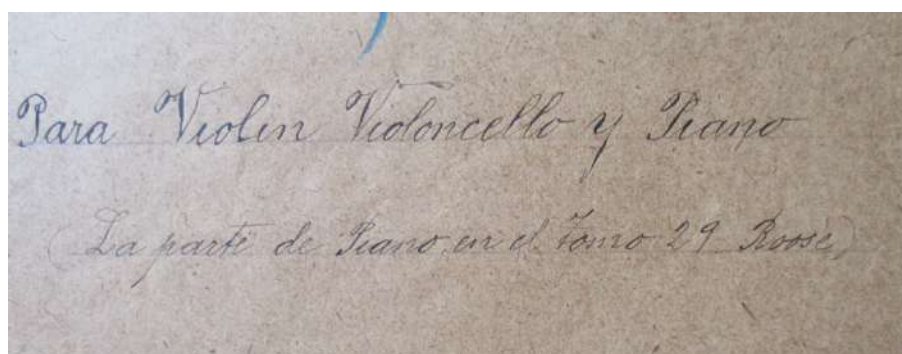 Para Violin Violoncello y Piano
(La parte de Piano en el Tomo 29 Roose)